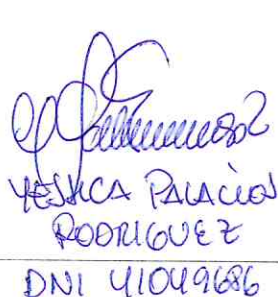 YESSICA PALACIOS
RODRIGUEZ
DNI 41049686